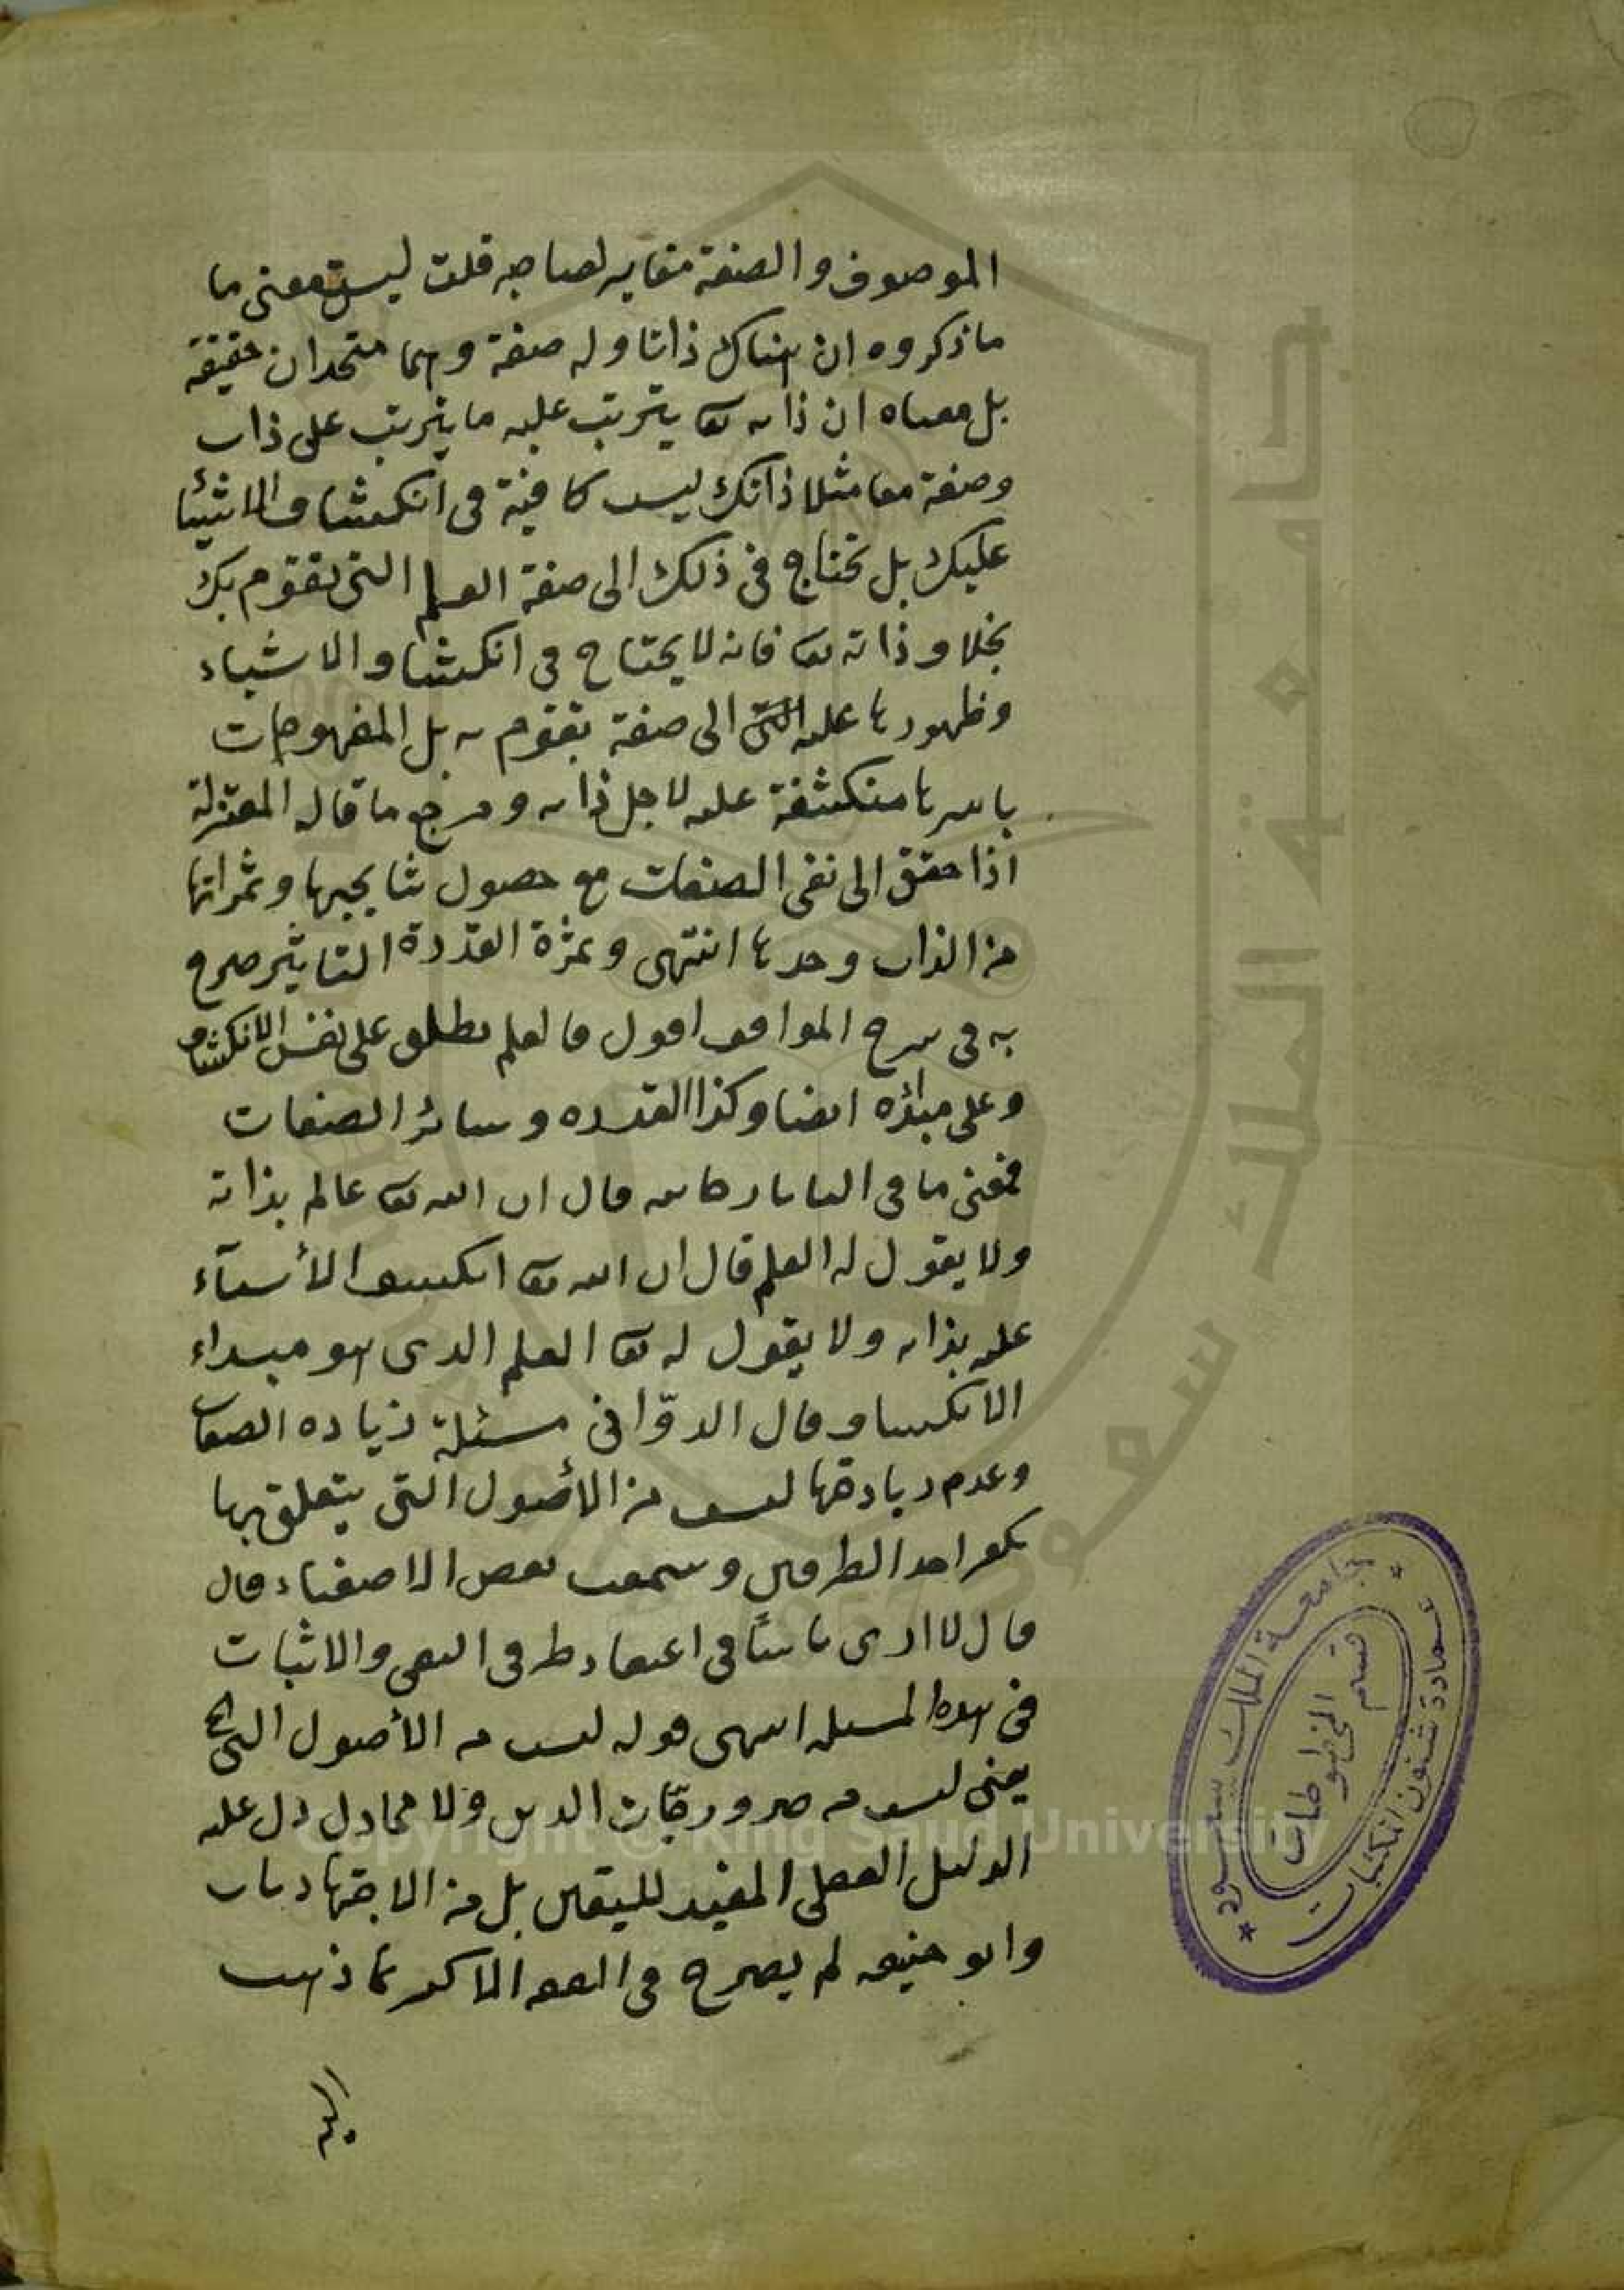 الموصوف والصفة مغاير لصاحبه قلت ليس معنى ما
ماذكروه ان هناك ذاتا وله صفة وهما متحدان حقيقة
بل معناه ان ذاته تع يترتب عليه ما يترتب على ذات
وصفة معا مثلا ذاتك ليست كافية في انكشاف الاشيا
عليك بل تحتاج في ذلك الى صفة العلم التي تقوم بك
بخلاف ذاته تع فانه لا يحتاج في انكشاف الاشياء
وظهورها عليه الى صفة تقوم به بل المفهومات
باسرها منكشفة عليه لاجل ذاته ومرجع ما قاله المعتزلة
اذا حقق الى نفى الصفات مع حصول نتايجها وثمراتها
من الذات وحدها انتهى وثمرة القدرة التاثير صرح
به في شرح المواقف اقول فالعلم يطلق على نفس الانكشاف
وعلى مبدئه ايضا وكذا القدرة وسائر الصفات
فمعنى ما في التاتارخانيه قال ان الله تع عالم بذاته
ولا يقول له العلم قال ان الله تع انكشف الأشيآء
عليه بذاته ولا يقول له تع العلم الذى هو مبداء
الانكشاف وقال الدوّاني مسئلة زيادة الصفات
وعدم زيادتها ليست من الأصول التي يتعلق بها
تكفر احد الطرفين وسمعت بعض الاصفياء قال
قال لا ارى باسًا في اعتقاد طرفى النفى والاثبات
في هذه المسئله انتهى قوله ليست من الأصول التي الخ
يعنى ليست من ضروريّات الدين ولا مما دل دل عليه
الدليل العقلى المفيد لليقين بل من الاجتهاديات
وابو حنيفه لم يصرح في الفقه الاكبر بما ذهب
جامعة الملك سعود
عمادة شئون المكتبات
قسم المخطوطات
جامعة الملك سعود
Copyright © King Saud University
1957